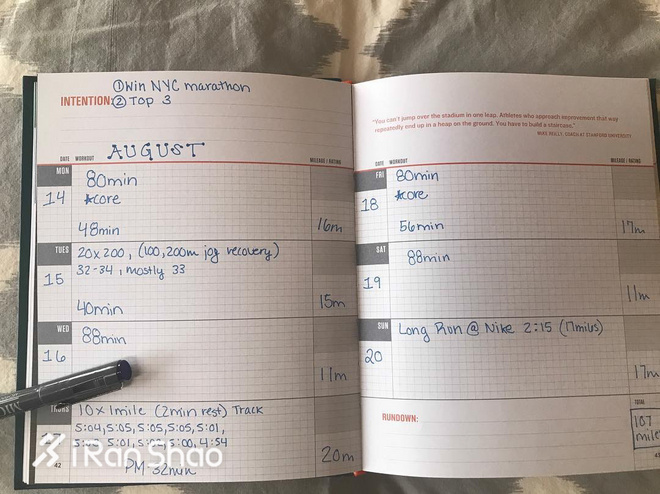 ①Win NYC marathon
INTENTION: ② Top 3
AUGUST
DATE WORKOUT MILEAGE / RATING
MON 80min
14 *core
48min 16m
TUES 20x200, (100,200m jog recovery)
15 32-34, mostly 33
40min 15m
WED 88min
16
11m
THURS 10x1mile (2min rest) Track
5:04, 5:05, 5:05, 5:05, 5:01,
5:01, 5:02, 5:00, 4:54
PM 32min 20m
42
iRanShao
"You can't jump over the stadium in one leap. Athletes who approach improvement that way
repeatedly end up in a heap on the ground. You have to build a staircase."
MIKE REILLY, COACH AT STANFORD UNIVERSITY
DATE WORKOUT MILEAGE / RATING
FRI 80min
18 *core
56min 17m
SAT 88min
19
11m
SUN Long Run @ Nike 2:15 (17miles)
20
17m
RUNDOWN:
TOTAL
107
miles
43